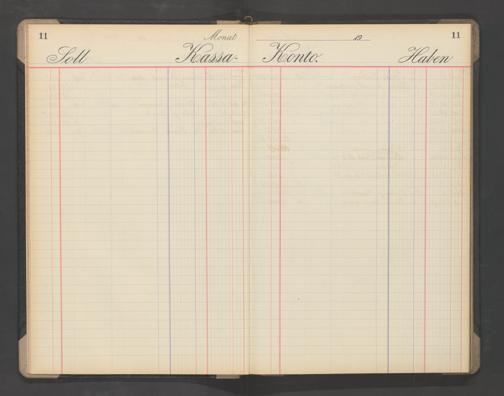 11 Monat 19 11
Soll Kassa- Konto. Haben